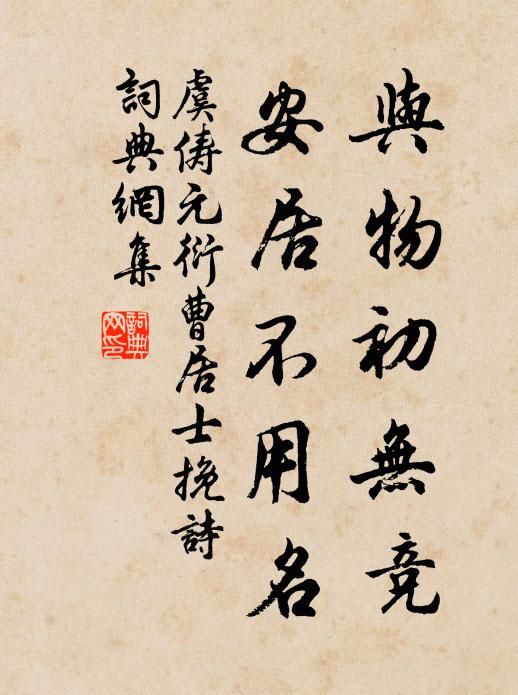 與物初無竞
安居不用名
虞儔元衍曹居士挽詩
詞典網集
詞典網印